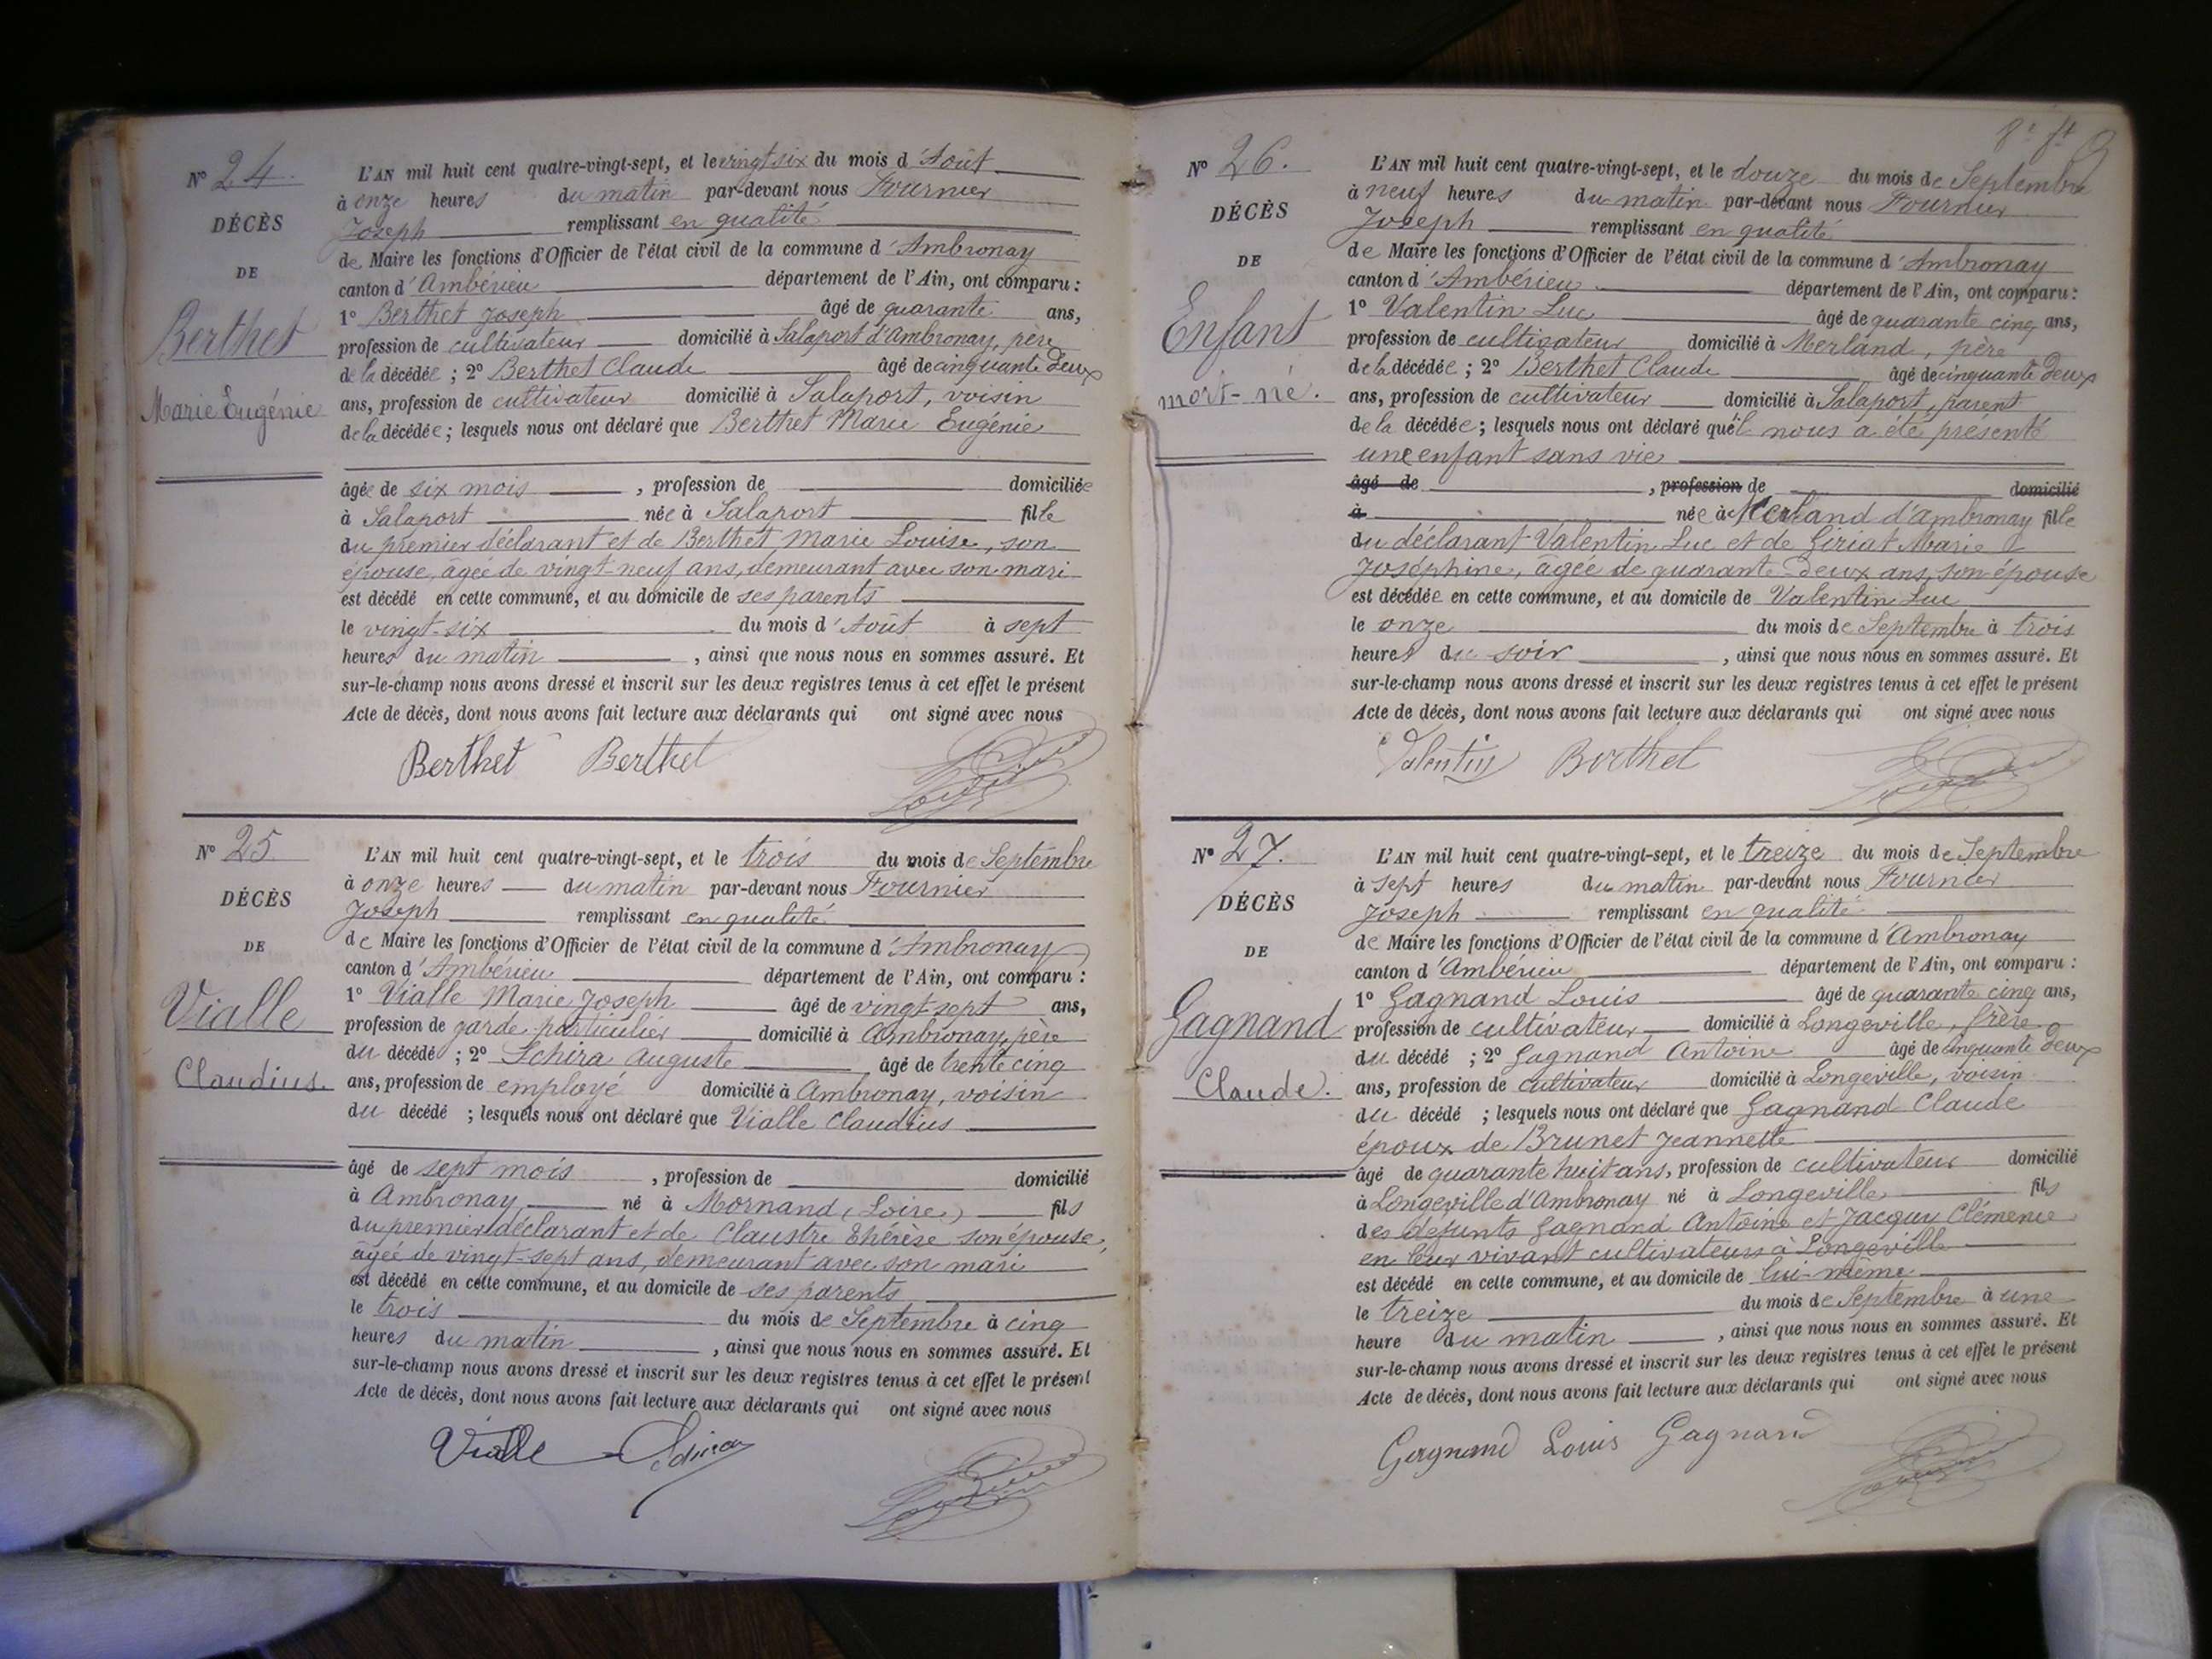 Nº 24.
DÉCÈS
DE
Berthet
Marie Eugénie
L'AN mil huit cent quatre-vingt-sept, et le vingt six du mois d'Août
à onze heures du matin par-devant nous Fournier
Joseph remplissant en qualité
de Maire les fonctions d'Officier de l'état civil de la commune d'Ambronay
canton d'Ambérieu département de l'Ain, ont comparu :
1º Berthet Joseph âgé de quarante ans,
profession de cultivateur domicilié à Salaport d'Ambronay, père
de la décédée ; 2º Berthet Claude âgé de cinquante deux
ans, profession de cultivateur domicilié à Salaport, voisin
de la décédée ; lesquels nous ont déclaré que Berthet Marie Eugénie
âgée de six mois , profession de domiciliée
à Salaport née à Salaport fille
du premier déclarant et de Berthet Marie Louise, son
épouse, âgée de vingt-neuf ans, demeurant avec son mari
est décédé en cette commune, et au domicile de ses parents
le vingt-six du mois d'Août à sept
heures du matin , ainsi que nous nous en sommes assuré. Et
sur-le-champ nous avons dressé et inscrit sur les deux registres tenus à cet effet le présent
Acte de décès, dont nous avons fait lecture aux déclarants qui ont signé avec nous
Berthet Berthet
Nº 25.
DÉCÈS
DE
Vialle
Claudius.
L'AN mil huit cent quatre-vingt-sept, et le trois du mois de Septembre
à onze heures du matin par-devant nous Fournier
Joseph remplissant en qualité
de Maire les fonctions d'Officier de l'état civil de la commune d'Ambronay
canton d'Ambérieu département de l'Ain, ont comparu :
1º Vialle Marie Joseph âgé de vingt-sept ans,
profession de garde particulier domicilié à Ambronay, père
du décédé ; 2º Schira Auguste âgé de trente cinq
ans, profession de employé domicilié à Ambronay, voisin
du décédé ; lesquels nous ont déclaré que Vialle Claudius
âgé de sept mois , profession de domicilié
à Ambronay né à Mornand (Loire) fils
du premier déclarant et de Claustre Thérèse son épouse,
âgée de vingt-sept ans, demeurant avec son mari
est décédé en cette commune, et au domicile de ses parents
le trois du mois de Septembre à cinq
heures du matin , ainsi que nous nous en sommes assuré. Et
sur-le-champ nous avons dressé et inscrit sur les deux registres tenus à cet effet le présent
Acte de décès, dont nous avons fait lecture aux déclarants qui ont signé avec nous
Vialle Schira
Nº 26.
DÉCÈS
DE
Enfant
mort-né.
L'AN mil huit cent quatre-vingt-sept, et le douze du mois de Septembre
à neuf heures du matin par-devant nous Fournier
Joseph remplissant en qualité
de Maire les fonctions d'Officier de l'état civil de la commune d'Ambronay
canton d'Ambérieu département de l'Ain, ont comparu :
1º Valentin Luc âgé de quarante cinq ans,
profession de cultivateur domicilié à Merland, père
de la décédée ; 2º Berthet Claude âgé de cinquante deux
ans, profession de cultivateur domicilié à Salaport, parent
de la décédée ; lesquels nous ont déclaré qu'il nous a été présenté
une enfant sans vie
âgé de , profession de domicilié
à née à Merland d'Ambronay fille
du déclarant Valentin Luc et de Giriat Marie
Joséphine, âgée de quarante-deux ans, son épouse
est décédée en cette commune, et au domicile de Valentin Luc
le onze du mois de Septembre à trois
heures du soir , ainsi que nous nous en sommes assuré. Et
sur-le-champ nous avons dressé et inscrit sur les deux registres tenus à cet effet le présent
Acte de décès, dont nous avons fait lecture aux déclarants qui ont signé avec nous
Valentin Berthet
Nº 27.
DÉCÈS
DE
Gagnand
Claude.
L'AN mil huit cent quatre-vingt-sept, et le treize du mois de Septembre
à sept heures du matin par-devant nous Fournier
Joseph remplissant en qualité
de Maire les fonctions d'Officier de l'état civil de la commune d'Ambronay
canton d'Ambérieu département de l'Ain, ont comparu :
1º Gagnand Louis âgé de quarante cinq ans,
profession de cultivateur domicilié à Longeville, frère
du décédé ; 2º Gagnand Antoine âgé de cinquante deux
ans, profession de cultivateur domicilié à Longeville, voisin
du décédé ; lesquels nous ont déclaré que Gagnand Claude
époux de Brunet Jeannette
âgé de quarante huit ans, profession de cultivateur domicilié
à Longeville d'Ambronay né à Longeville fils
des défunts Gagnand Antoine et Jacquy Clémence
en leur vivant cultivateurs à Longeville
est décédé en cette commune, et au domicile de lui-même
le treize du mois de Septembre à une
heure du matin , ainsi que nous nous en sommes assuré. Et
sur-le-champ nous avons dressé et inscrit sur les deux registres tenus à cet effet le présent
Acte de décès, dont nous avons fait lecture aux déclarants qui ont signé avec nous
Gagnand Louis Gagnand